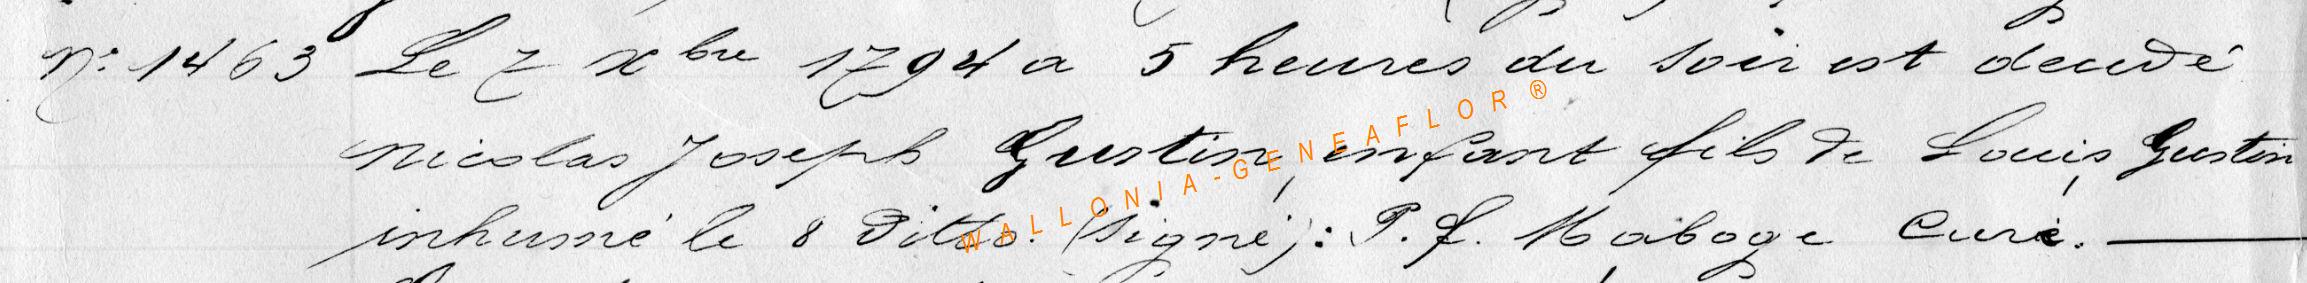 N: 1463 Le 7 Xbre 1794 a 5 heures du soir est decedé
Nicolas Joseph Gustin, enfant fils de Louis, Gustin
inhumé le 8 Ditto. (Signé): P. f. Maboge Curé.
WALLONIA-GENEAFLOR®